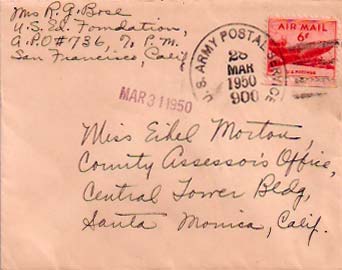 Mrs R. G. Bose
U.S. Ed. Foundation,
A.P.O #736, % P.M.
San Francisco, Calif.
U.S. ARMY POSTAL SERVICE
28
MAR
1950
900
AIR MAIL
6¢
U.S. POSTAGE
MAR 31 1950
Miss Ethel Morton,
County Assessor's Office,
Central Tower Bldg,
Santa Monica, Calif.